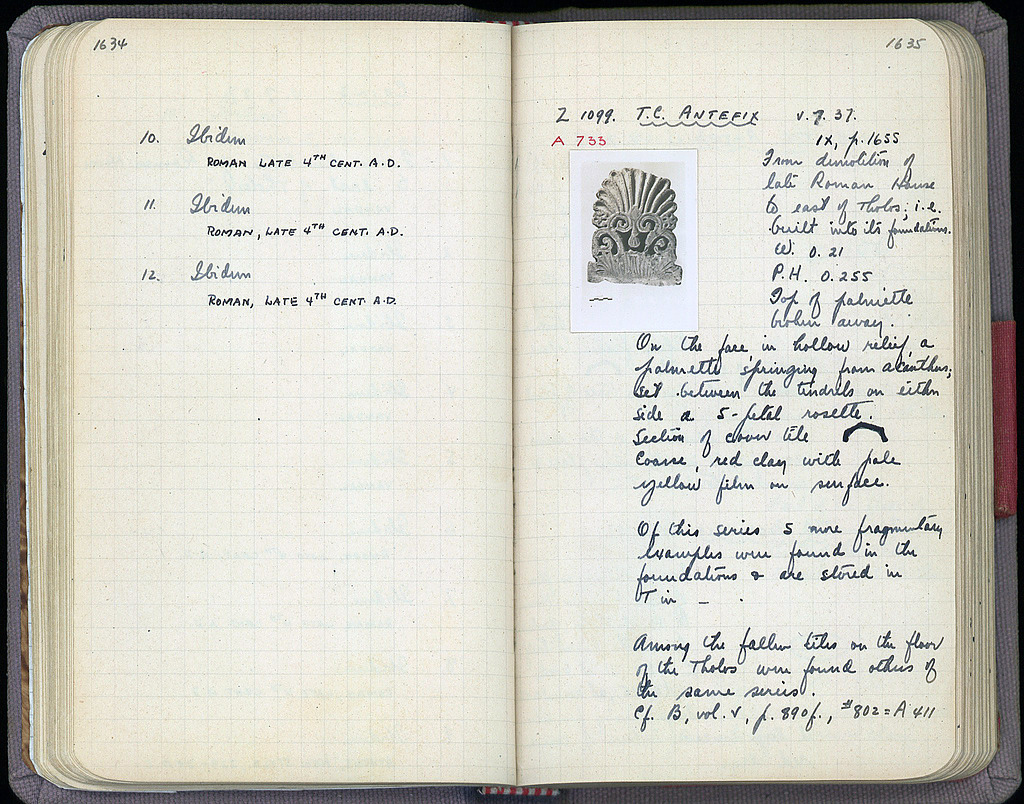 1634
10. Ibidem
ROMAN LATE 4TH CENT. A.D.
11. Ibidem
ROMAN, LATE 4TH CENT. A.D.
12. Ibidem
ROMAN, LATE 4TH CENT. A.D.
1635
Z 1099. T.C. ANTEFIX V.7.37.
A 733
IX, p. 1655
From demolition of
late Roman House
to east of Tholos; i.e.
built into its foundations.
W. 0.21
P.H. 0.255
Top of palmette
broken away.
On the face, in hollow relief, a
palmette springing from acanthus;
set between the tendrils on either
side a 5-petal rosette.
Section of cover tile
Coarse, red clay with pale
yellow film on surface.
Of this series 5 more fragmentary
examples were found in the
foundations & are stored in
Tin –
Among the fallen tiles on the floor
of the Tholos were found others of
the same series.
Cf. B, vol. V, p. 890f., #802 = A 411